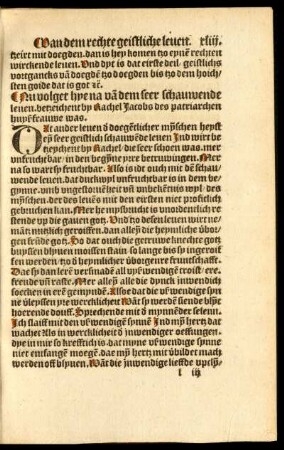 Van dem rechte geistliche leuen. xliij.
tzeirt mit doegden. dan is hey komen tzo eynē rechten
wirckende leuen. Vnd dyt is dat eirste deil geistlichs
vortgancks vā doegdē tzo doegden bis tzo dem hoich/
sten goide dat is got
Nu volget hye na vā dem seer schauwende
leuen. bezeichent by Rachel Jacobs des patriarchen
huyßfrauwe was.
Dat ander leuen ð doegētlicher mynschen heyst
eyn seer geistlich schauwēde leuen Jnd wirt be
tzeychent by Rachel. die seer schoen was. mer
vnfruchtbar / in den begyne yrre betruwingen. Mer
na so wart sy fruchtbar. Also is ouch mit dē schau/
wende leuen. dat duckwyl vnfruchtbar is in dem be/
gynne. vmb vngestomheit vnd vnbekentnis wyl. des
mynschen. der des leuens mit den eirsten niet profelich
gebruychen kan. Mer he mysbruicht is vnordentlich re
stende vp die gauen gotz. Vnd tzo desem leuen wirt ne/
man nützlich geroiffen. dan alleyn die heymliche übor
gen fründe gotz. So dat ouch die getruwe knecht gotz
buyssen dynen moissen stain so lange bis sy ingeroif
fen werden. tzo ð heymlicher übor genre fruntschaffe.
Dat sy dan leert versmade all vyßwendige troist / ere.
freude vñ raste. Mer alleyn alle die dynck jnwendich
soecken in erē gemynde. Also dat die vßwendige syn
ne vleyssen yre wercklicheit Wāt sy werdē siende blyn
hoerende douff. Sprechende mit ð mynnēder selenn.
Jch slaiff mit den vßwendige synnē Jnd mȳ hertz dat
wachet Als in wercklicheit ð jnwendiger oeffungen.
dye in mir so krefftich is. dat myne vßwendige synne
niet entfangē moegē. dae mȳ hertz mit vbildet mach
werden off blyuen. Wāt die jnwendige liefde vpclȳ/
l iij